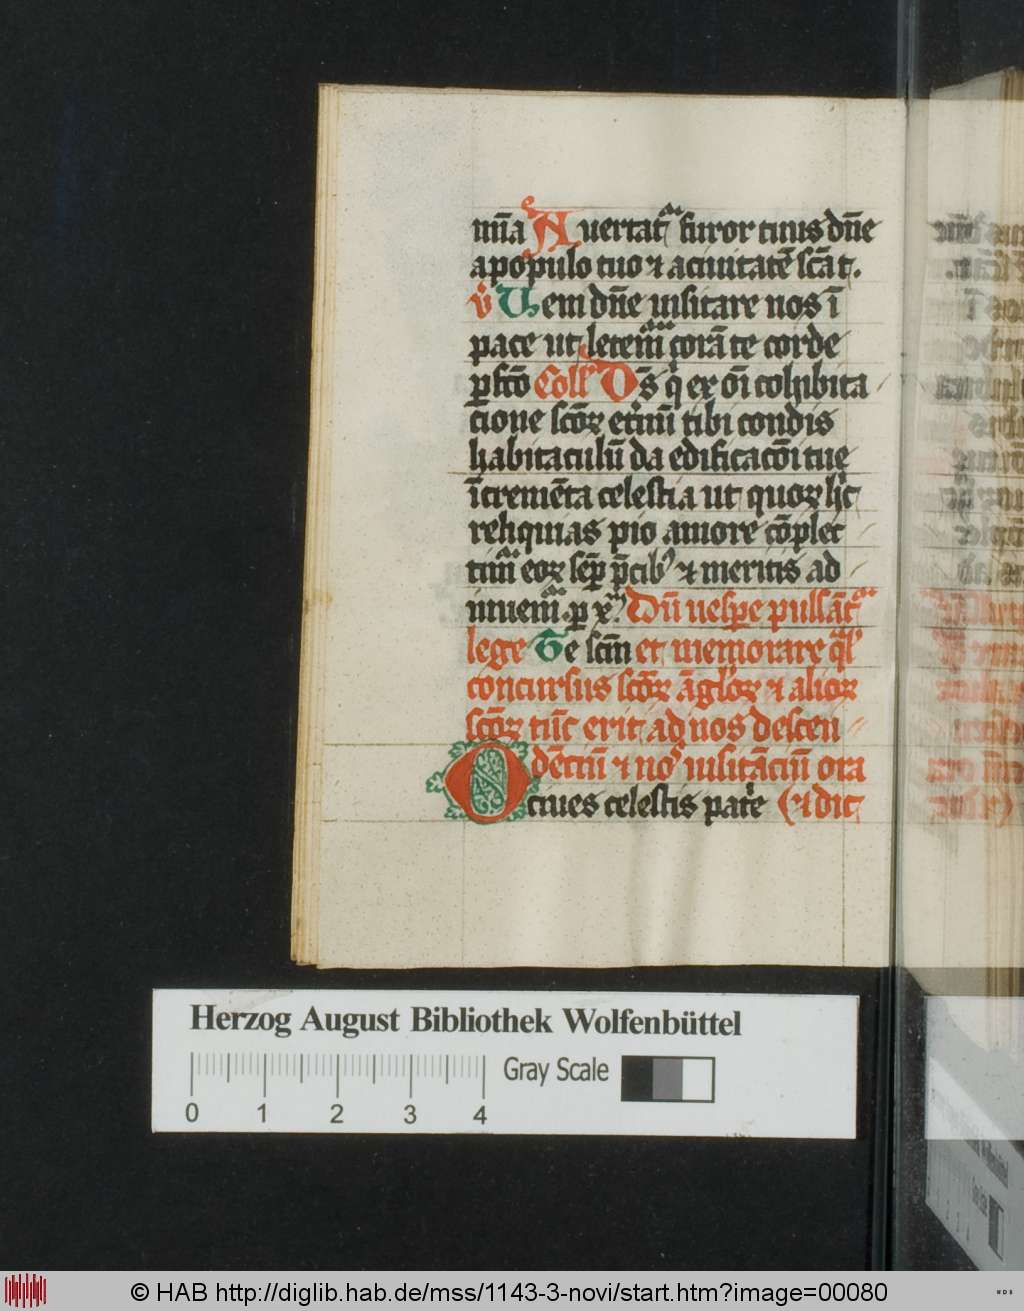 mīa Auertat᷒ furor tuus dn̄e
a populo tuo ⁊ a ciuitatē scāt.
v̄ Uem dn̄e uisitare nos ī
pace ut letem᷒ corā te corde
ꝑfc̄o Coll᷒ Ds̄ q̇ ex oī cohibita
cione sc̄oꝝ et̄nū tibi condis
habitaculū da edificac̄oī tue
īcremēta celestia ut quoꝝ hic
reliquias pio amore cōplec
tim᷒ eoꝝ semꝑ p̄cib᷒ ⁊ meritis ad
iuuem᷒. ꝑ x̄. Dū uesꝑe pulsāt᷒
lege Te sc̄m et memorare qͣl᷒
concursus sc̄oꝝ āgl̓oꝝ ⁊ alioꝝ
sc̄oꝝ tūc erit ad nos descen
dēciū ⁊ nos uisitāciū ora
O ciues celestis patͥe (⁊ dic
Herzog August Bibliothek Wolfenbüttel
Gray Scale
0 1 2 3 4
© HAB http://diglib.hab.de/mss/1143-3-novi/start.htm?image=00080